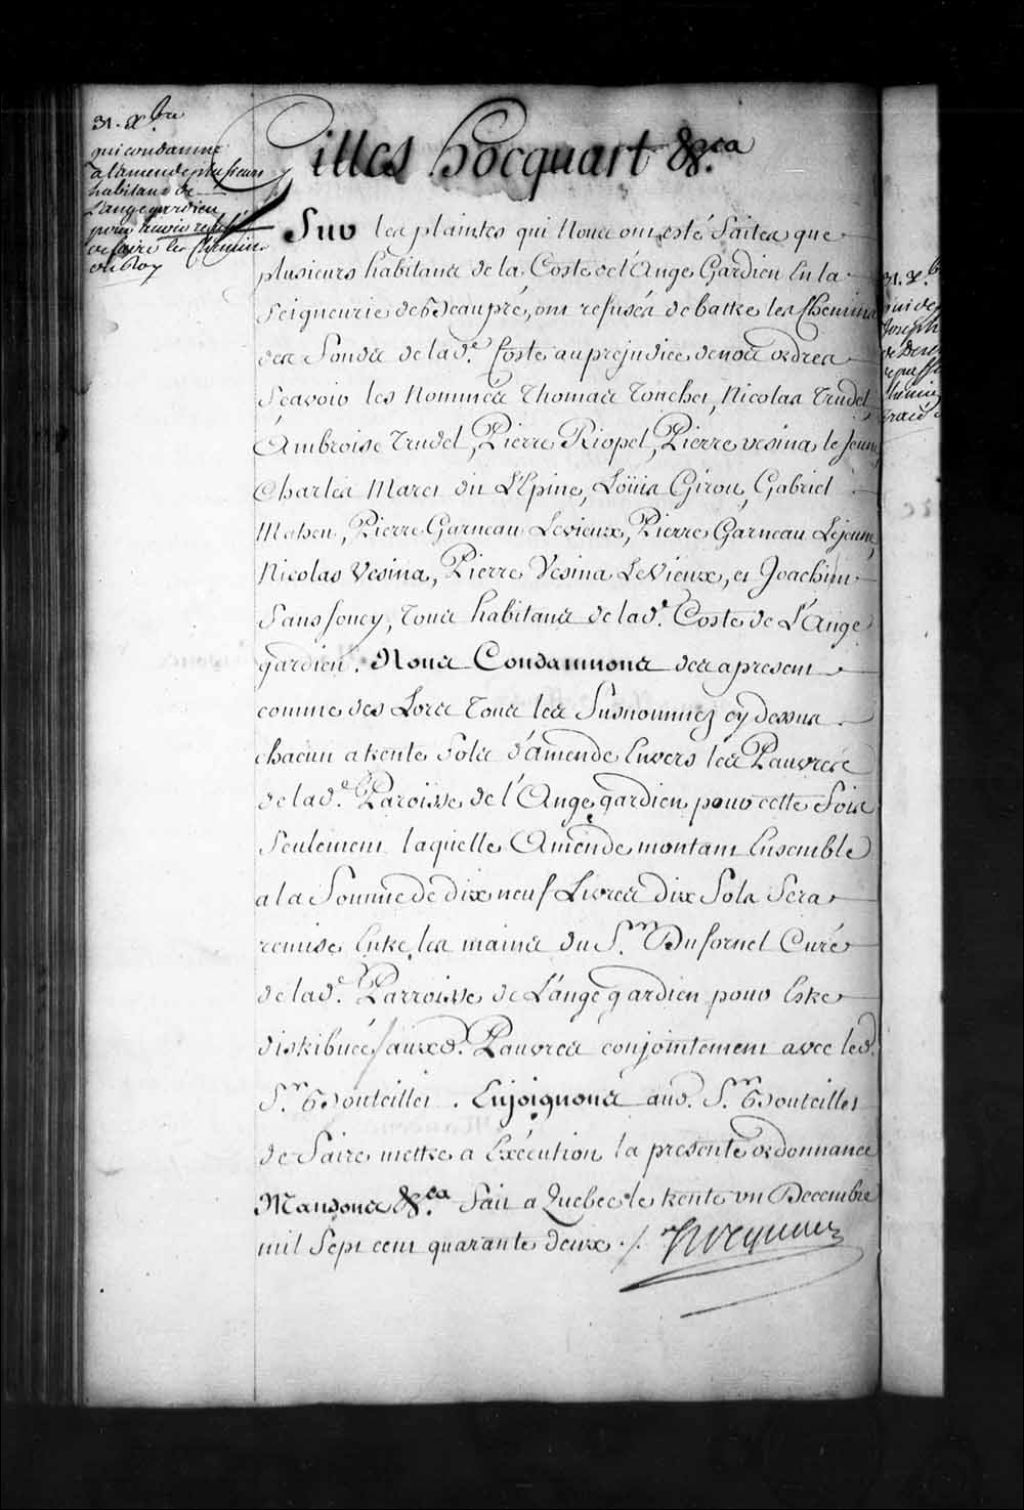 31. Xbre
qui condamne
a l'amende plusieurs
habitans de
L'ange gardien
pour avoir refusé
de faire les Chemins
du Roy
Gilles hocquart &ca
Sur les plaintes qui Nous ont esté faites que
plusieurs habitans de la Coste de l'Ange Gardien En la
Seigneurie de Beaupré, ont refusés de battre les Chemins
des fonds de lad.e Coste au prejudice de nos ordres
Scavoir les Nommés Thomas Touchet, Nicolas Trudel,
Ambroise Trudel, Pierre Riopel, Pierre vesina le Jeune,
Charles Maret du L'Epine, Loüis Girou, Gabriel
Maheu, Pierre Garneau Levieux, Pierre Garneau Lejeune,
Nicolas Vesina, Pierre Vesina LeVieux, et Joachim
Sanssoucy, Tous habitans de lad.e Coste de L'Ange
gardien. Nous Condamnons des apresent
comme des Lors Tous les Susnommez cy dessus
chacun a trente Sols d'amende Envers les Pauvres
de lad.e Paroisse de l'Ange gardien pour cette fois
Seulement laquelle Amende montant Ensemble
a la Somme de dix neuf Livres dix Sols Sera
remise Entre les mains du S.r Dufornel Curé
de lad.e Parroisse de L'ange gardien pour Estre
distribuée aux d. Pauvres conjointement avec led.
S.r Bouteiller. Enjoignons aud. S.r Bouteiller
de faire mettre a Exécution la presente ordonnance
Mandons &ca fait a Quebec le trente un Decembre
mil Sept cent quarante deux ./. Hocquart
31. X.b
qui de
Joseph